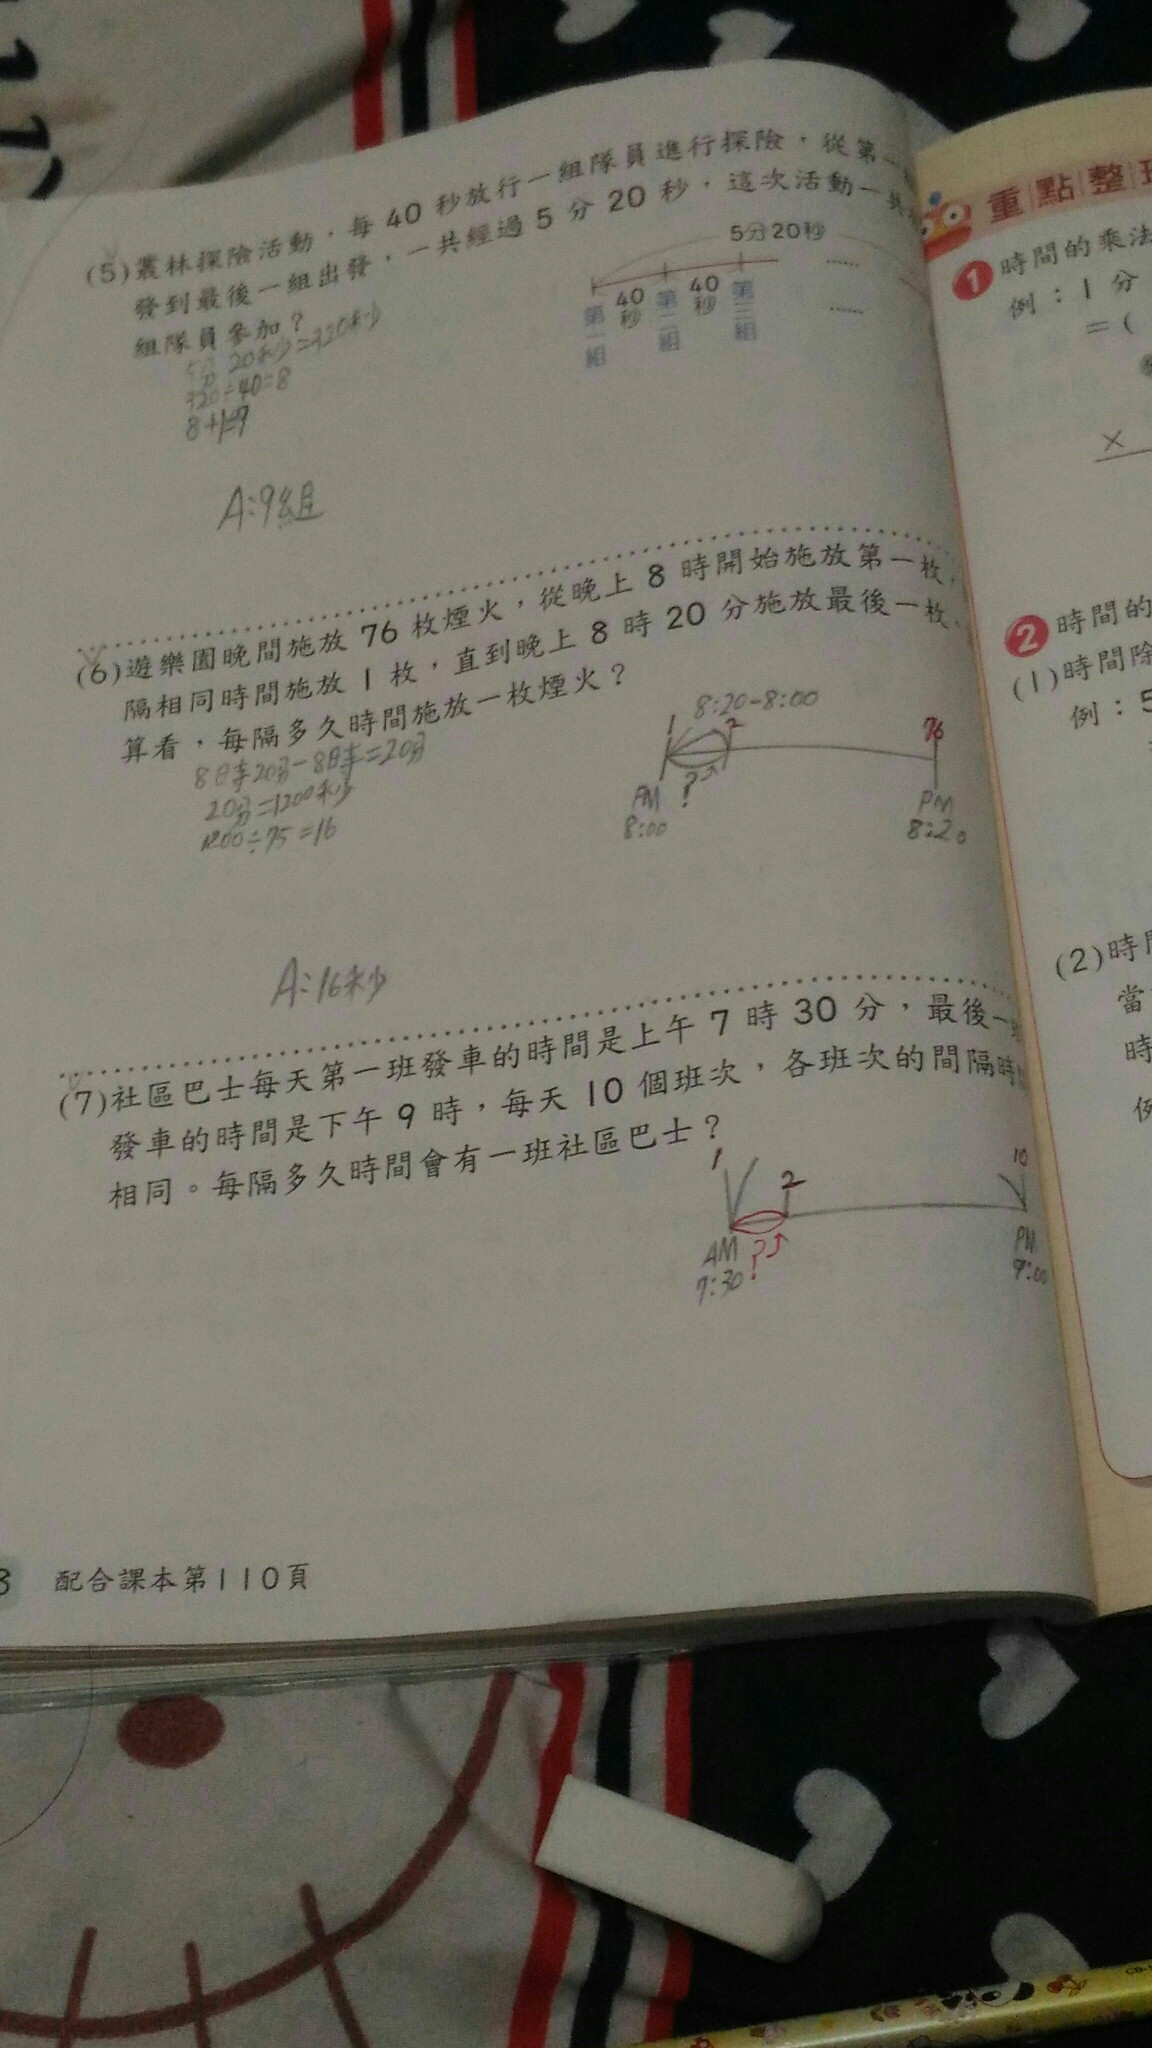 (5)叢林探險活動，每 40 秒放行一組隊員進行探險，從第一
發到最後一組出發，一共經過 5 分 20 秒，這次活動一共
組隊員參加？
5分20秒
40秒
40秒
第一組
第二組
第三組
......
......
5分20秒=320秒
320÷40=8
8+1=9
A:9組
(6)遊樂園晚間施放 76 枚煙火，從晚上 8 時開始施放第一枚，
隔相同時間施放 1 枚，直到晚上 8 時 20 分施放最後一枚。
算看，每隔多久時間施放一枚煙火？
8時20分-8時=20分
20分=1200秒
1200÷75=16
8:20-8:00
1
2
76
?
PM
8:00
PM
8:20
A:16秒
(7)社區巴士每天第一班發車的時間是上午 7 時 30 分，最後一
發車的時間是下午 9 時，每天 10 個班次，各班次的間隔時
相同。每隔多久時間會有一班社區巴士？
1
2
10
AM
7:30
?
PM
9:00
配合課本第110頁
重點整
1 時間的乘法
例：1 分
=(
×
2 時間的
(1)時間除
例：5
(2)時
當
時
例